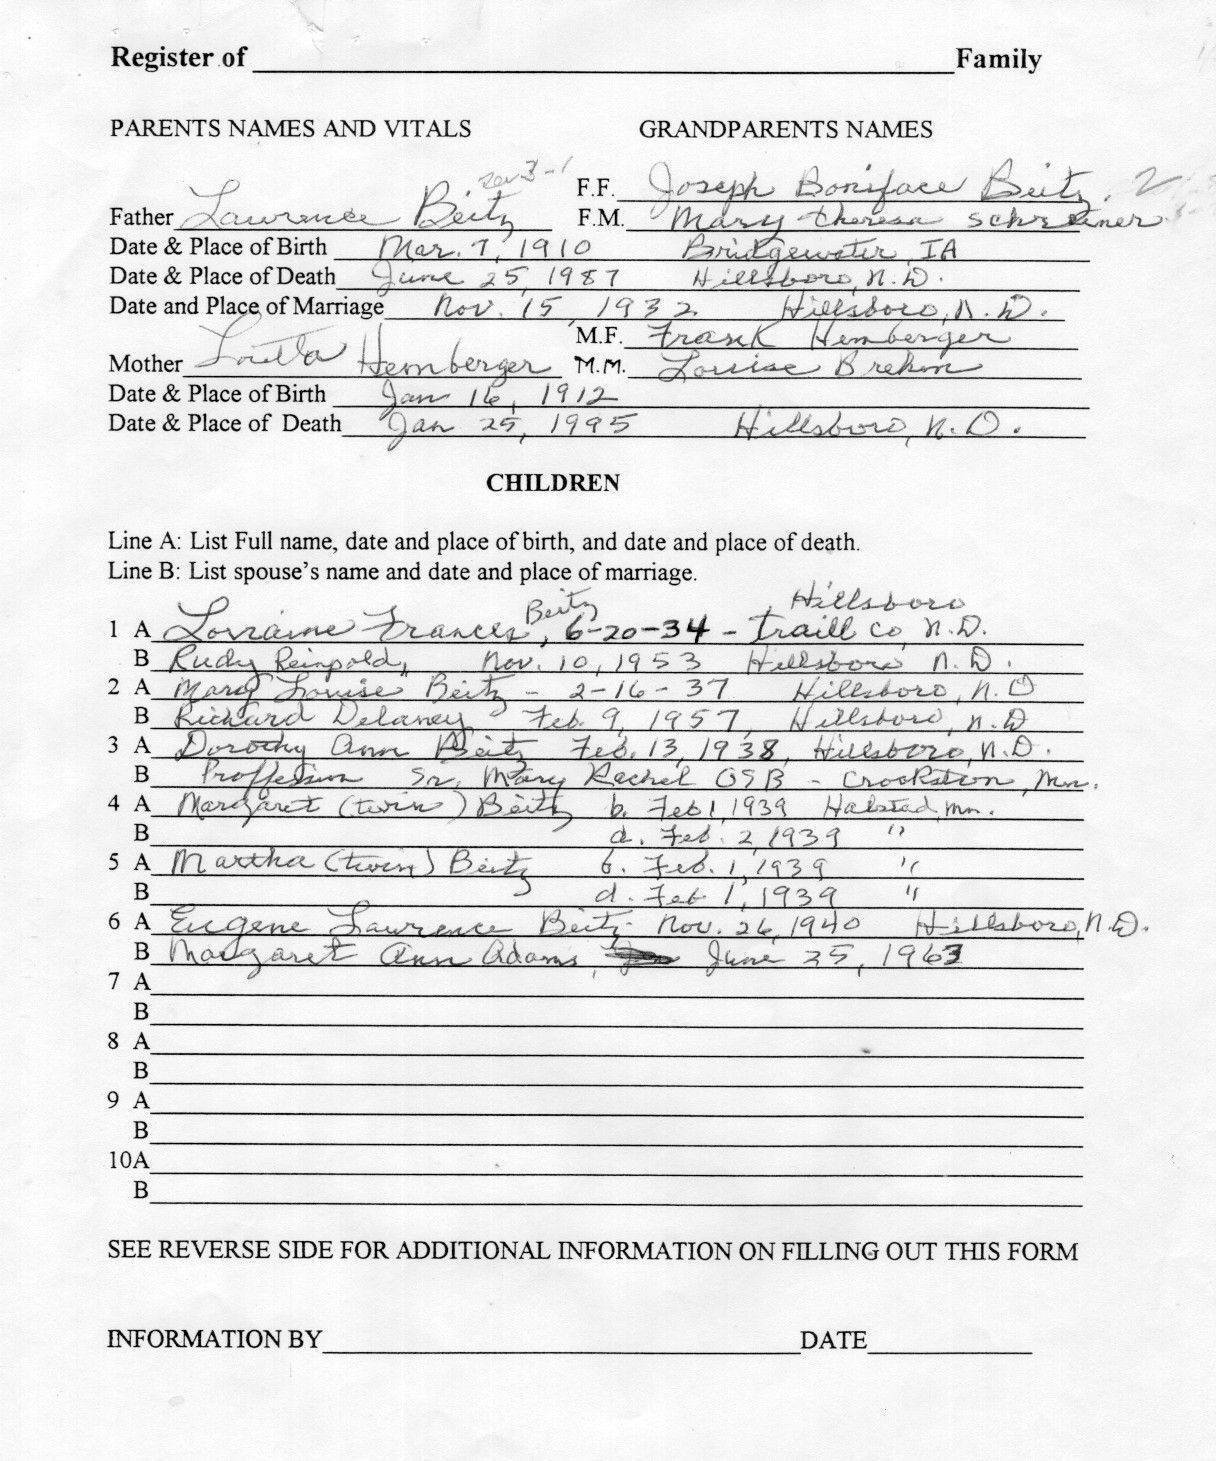 Register of Family
PARENTS NAMES AND VITALS GRANDPARENTS NAMES
F.F. Joseph Boniface Beitz 2
Father Lawrence Beitz F.M. Mary Theresa Schreiner
Date & Place of Birth Mar. 7, 1910 Bridgewater, IA
Date & Place of Death June 25, 1987 Hillsboro, N.D.
Date and Place of Marriage Nov. 15, 1932 Hillsboro, N.D.
M.F. Frank Hemberger
Mother Loretta Hemberger M.M. Louise Brehm
Date & Place of Birth Jan 16, 1912
Date & Place of Death Jan 25, 1995 Hillsboro, N.D.
CHILDREN
Line A: List Full name, date and place of birth, and date and place of death.
Line B: List spouse's name and date and place of marriage.
Beitz Hillsboro
1 A Lorraine Frances, 6-20-34 - Traill Co, N.D.
B Rudy Reinpold, Nov. 10, 1953 Hillsboro N.D.
2 A Mary Louise Beitz - 2-16-37 Hillsboro, N.D
B Richard Delaney Feb. 9, 1957, Hillsboro, N.D
3 A Dorothy Ann Beitz Feb. 13, 1938, Hillsboro, N.D.
B Proffession Sr. Mary Rachel OSB - Crookston, Mn.
4 A Margaret (twin) Beitz b. Feb 1, 1939 Halstad, Mn.
B d. Feb. 2, 1939 "
5 A Martha (twin) Beitz b. Feb. 1, 1939 "
B d. Feb 1, 1939 "
6 A Eugene Lawrence Beitz Nov. 26, 1940 Hillsboro, N.D.
B Margaret Ann Adams, June 25, 1963
7 A
B
8 A
B
9 A
B
10A
B
SEE REVERSE SIDE FOR ADDITIONAL INFORMATION ON FILLING OUT THIS FORM
INFORMATION BY DATE